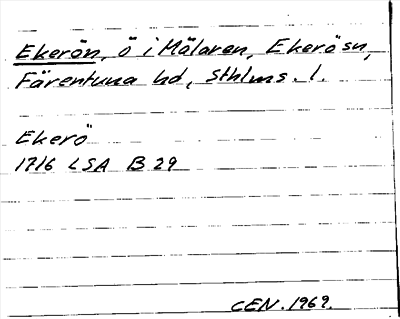 Ekerön, ö i Mälaren, Ekerö sn,
Färentuna hd, Sthlms. l.
Ekerö
1716 LSA B 29
CEN. 1969.